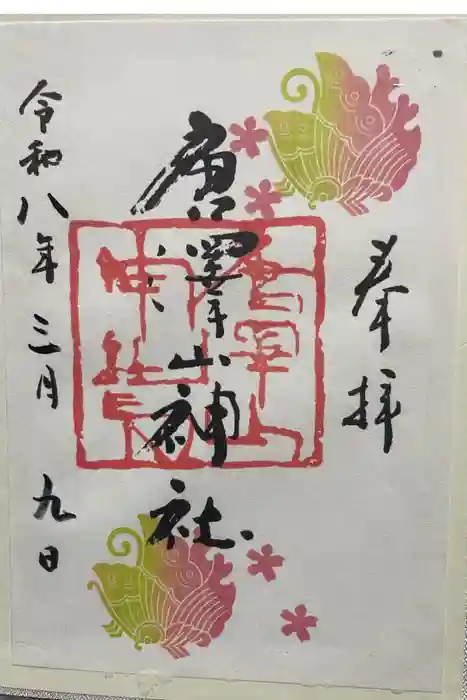 奉拝
唐澤山神社
唐澤山
神社
令和八年三月九日